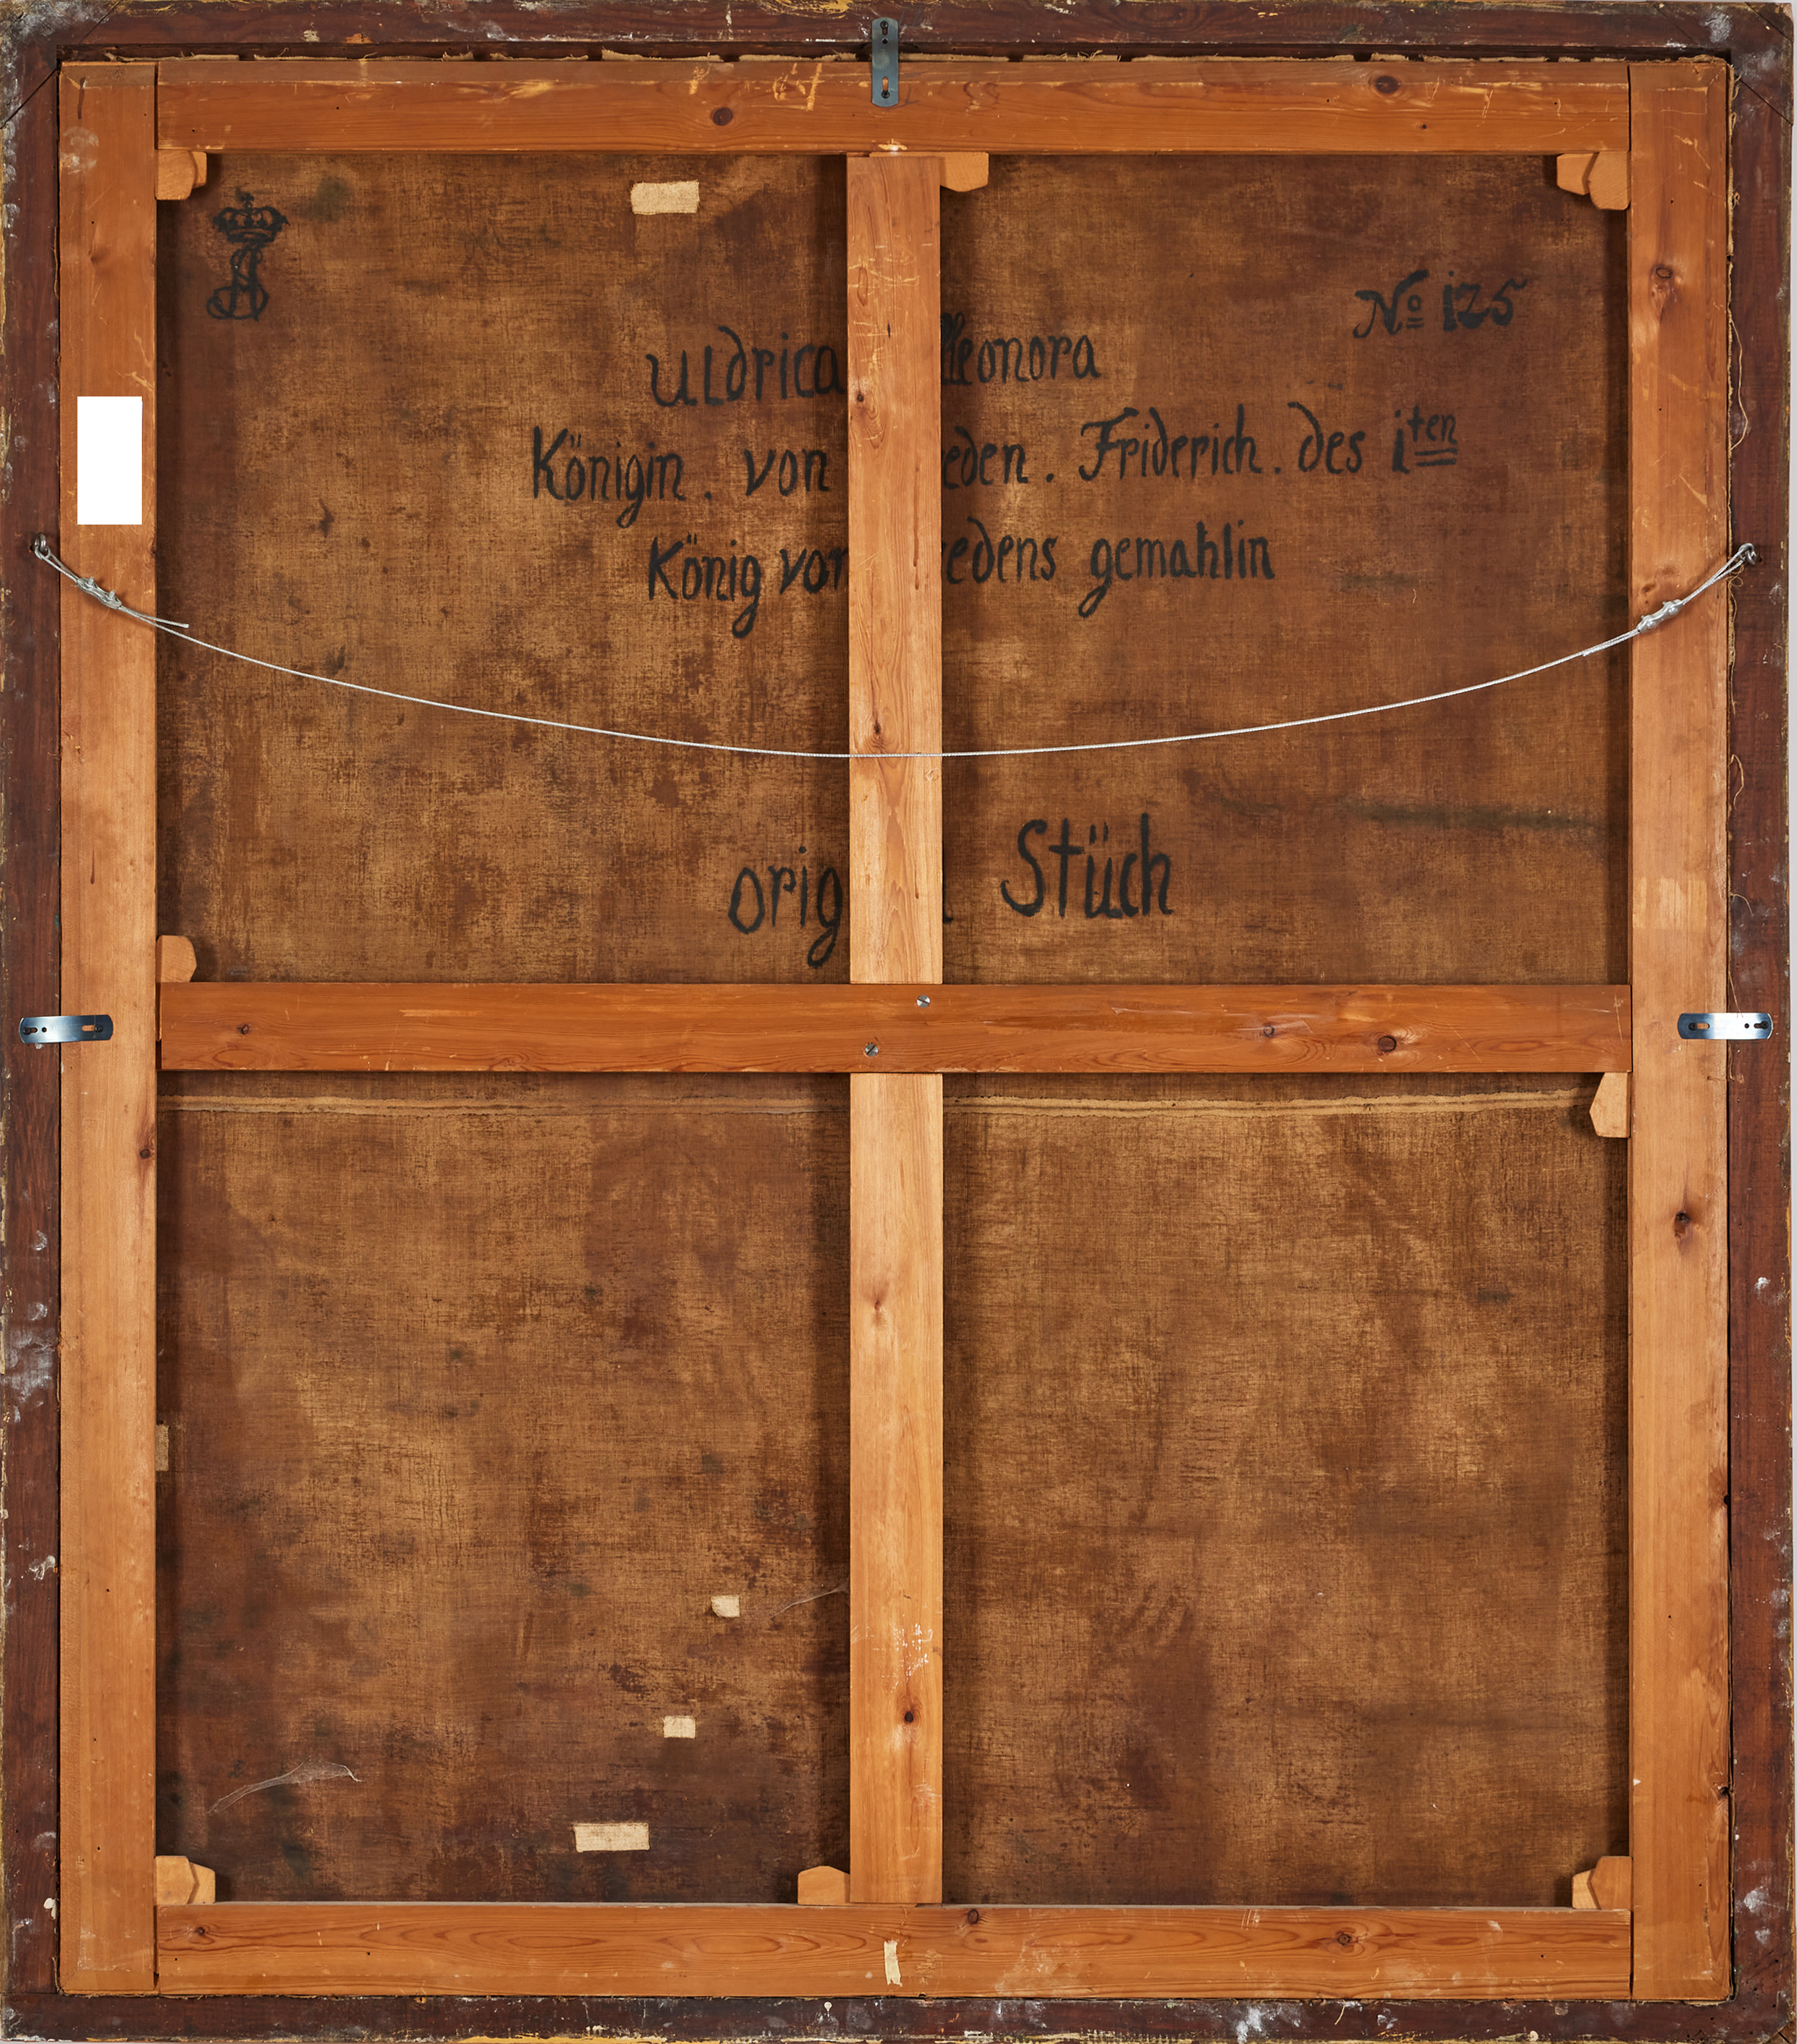 N⁰ i25
Uldrica lleonora
Königin . von eden . Friderich . des iten
König von edens gemahlin
orig Stüch